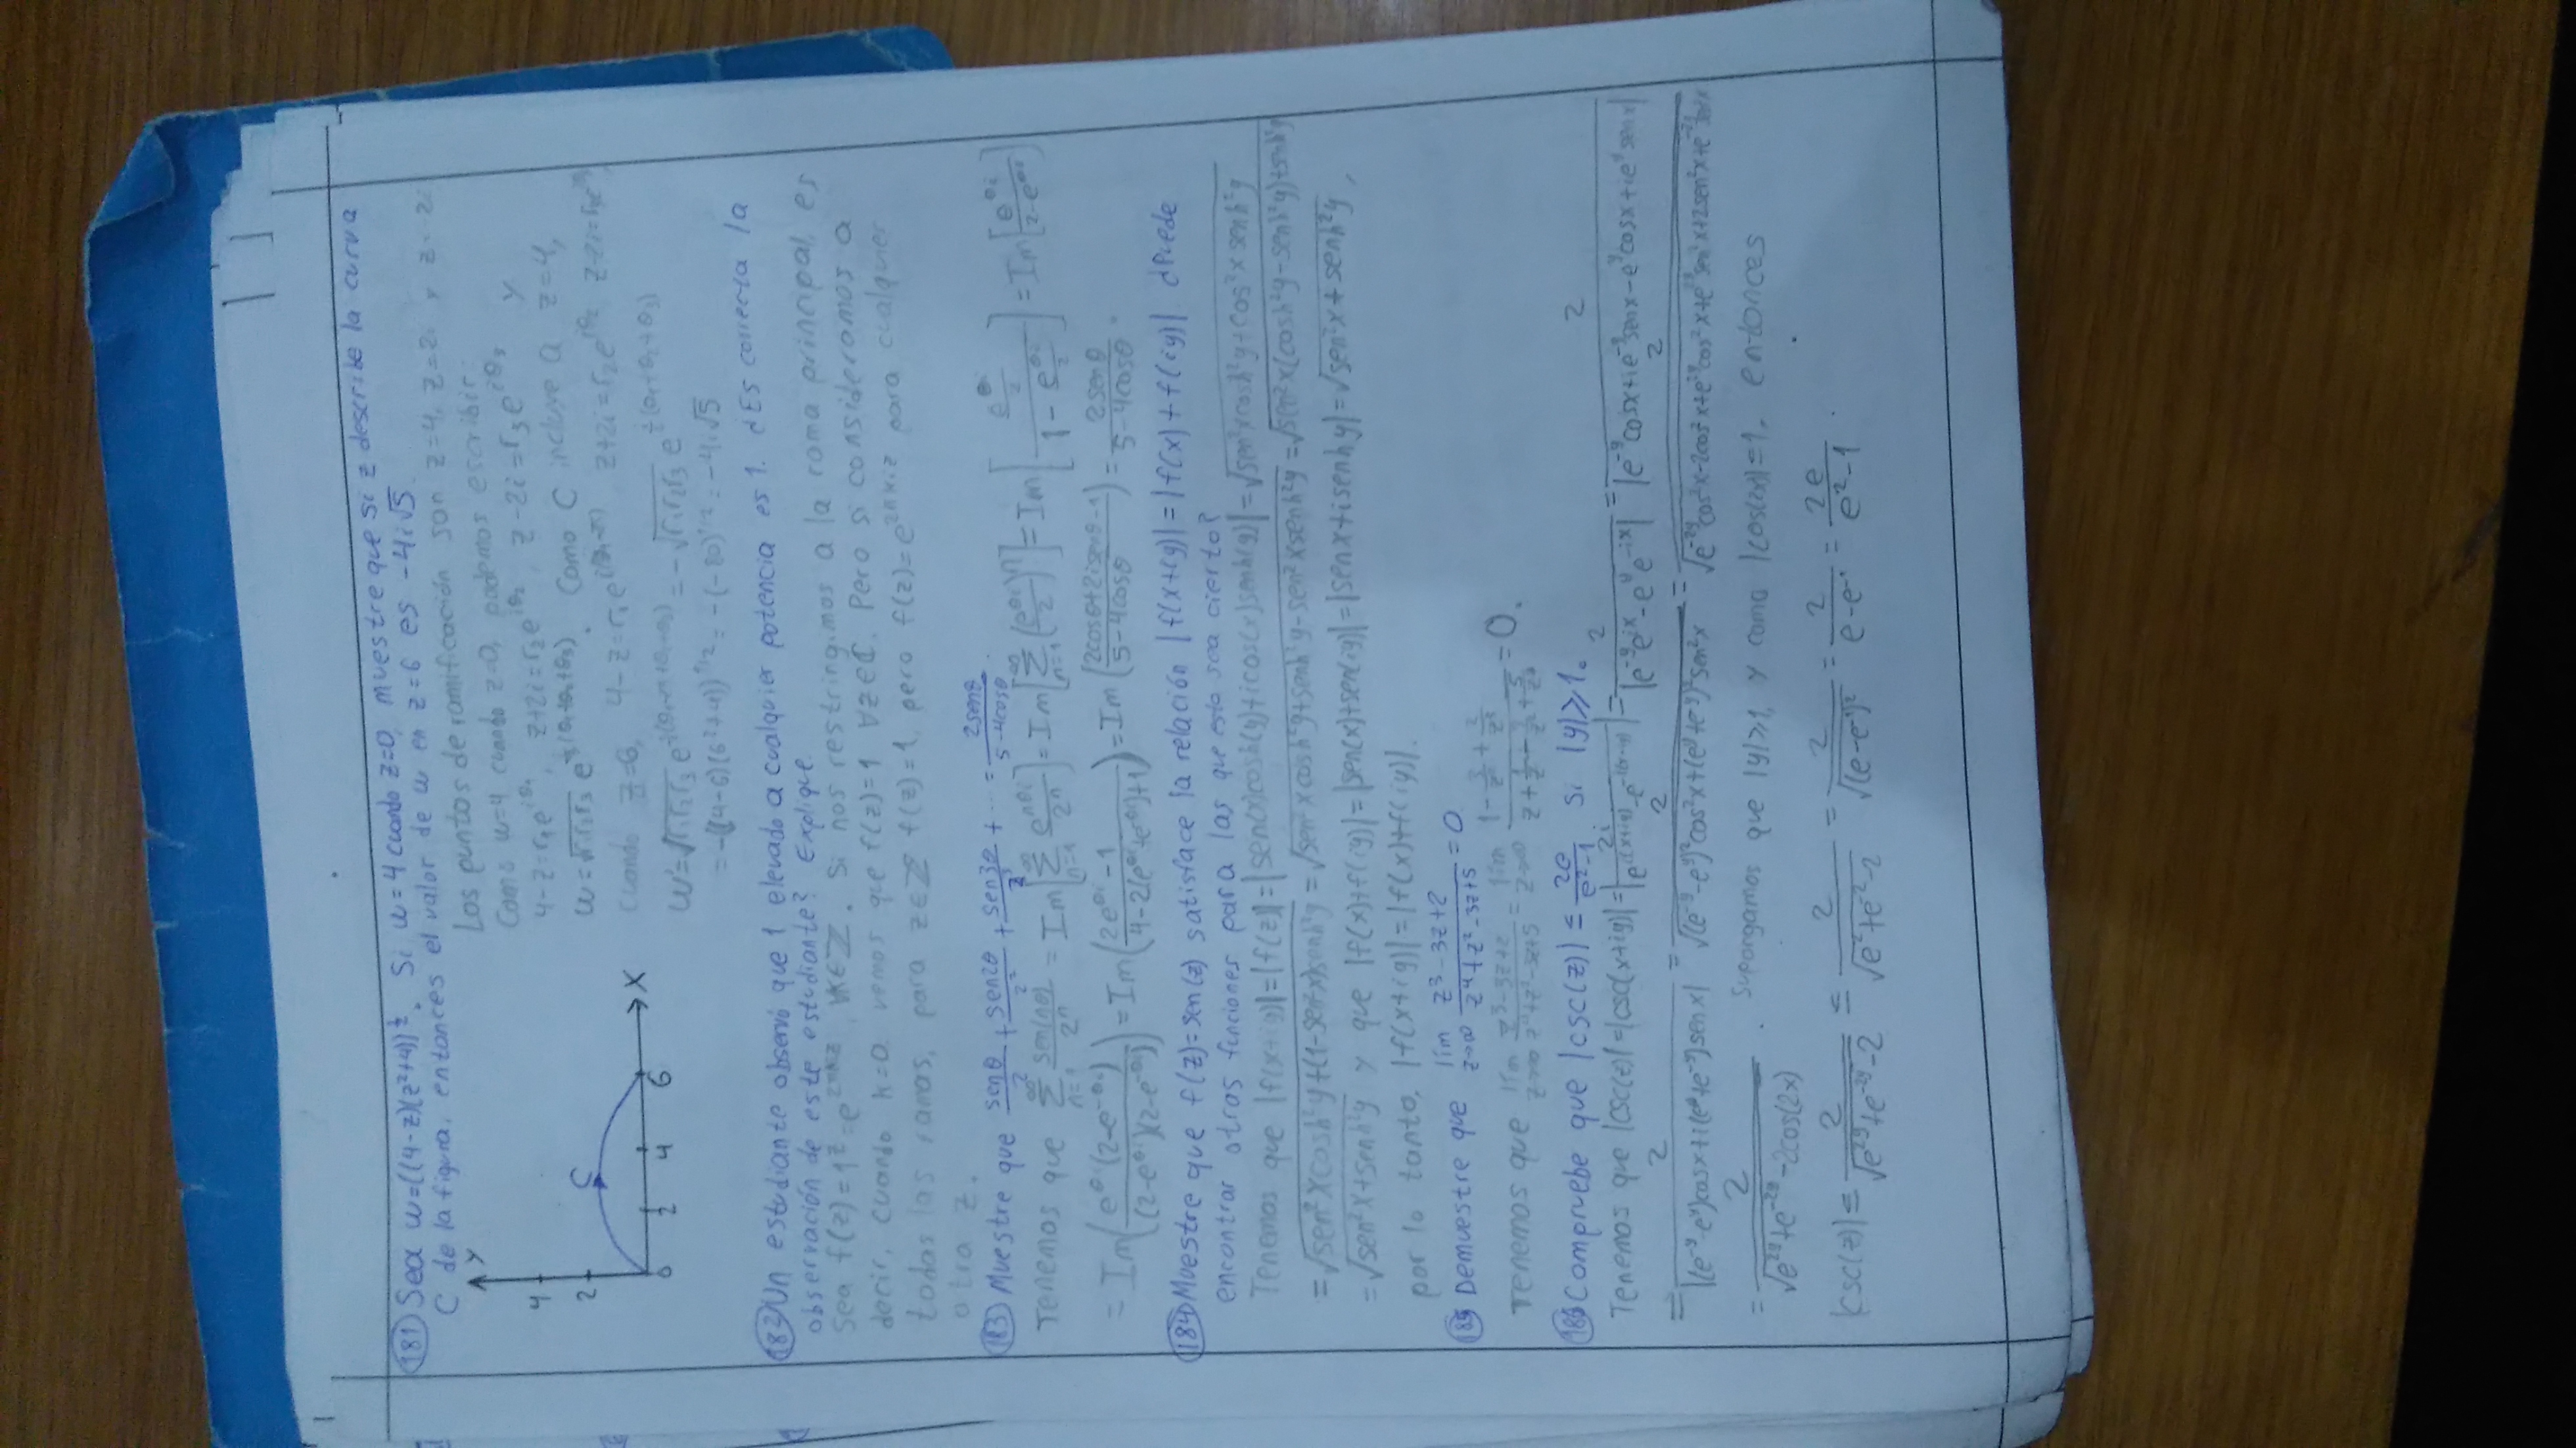 (181) Sea w=((4-z)(z²+4))^½. Si w=4 cuando z=0, muestre que si z describe la curva
C de la figura, entonces el valor de w en z=6 es -4i√5.
Y
4
2
C
0 2 4 6 X
Los puntos de ramificación son z=4, z=2i y z=-2i
Como w=4 cuando z=0, podemos escribir:
4-z=r₁e^{iθ₁}, z+2i=r₂e^{iθ₂}, z-2i=r₃e^{iθ₃} y
w=√(r₁r₂r₃) e^{½(θ₁+θ₂+θ₃)}. Como C incluye a z=4,
cuando z=6, 4-z=r₁e^{i(θ₁-π)} z+2i=r₂e^{iθ₂} z-2i=
=-((4-6)(6²+4))^{1/2}=-(-80)^{1/2}=-4i√5
(182) Un estudiante observó que 1 elevado a cualquier potencia es 1. ¿Es correcta la
observación de este estudiante? Explique.
Sea f(z)=1^z=e^{2πkiz}, ∀k∈ℤ. Si nos restringimos a la rama principal, es
decir, cuando k=0 vemos que f(z)=1 ∀z∈ℂ. Pero si consideramos a
todas las ramas, para z∈ℤ f(z)=1, pero f(z)=e^{2πkiz} para cualquier
otra z.
(183) Muestre que senθ/2 + sen2θ/2² + sen3θ/2³ + ... = 2senθ/(5-4cosθ).
Tenemos que ∑_{n=1}^{∞} sen(nθ)/2ⁿ = Im[∑_{n=1}^{∞} e^{nθi}/2ⁿ] = Im[∑_{n=1}^{∞} (e^{θi}/2)ⁿ] = Im[(e^{θi}/2)/(1-e^{θi}/2)] = Im[e^{θi}/(2-e^{θi})]
= Im(e^{θi}(2-e^{-θi})/((2-e^{θi})(2-e^{-θi}))) = Im((2e^{θi}-1)/(4-2(e^{θi}+e^{-θi})+1)) = Im((2cosθ+2isenθ-1)/(5-4cosθ)) = 2senθ/(5-4cosθ).
(184) Muestre que f(z)=sen(z) satisface la relación |f(x+iy)|=|f(x)+f(iy)|. ¿Puede
encontrar otras funciones para las que esto sea cierto?
Tenemos que |f(x+iy)|=|f(z)|=|sen(x)cosh(y)+icos(x)senh(y)|=√(sen²xcosh²y+cos²x senh²y)
=√(sen²xcosh²y+(1-sen²x)senh²y)=√(sen²xcosh²y+senh²y-sen²xsenh²y)=√(sen²x(cosh²y-senh²y)+senh²y)
=√(sen²x+senh²y) y que |f(x)+f(iy)|=|sen(x)+sen(iy)|=|senx+isenhy|=√(sen²x+senh²y),
por lo tanto, |f(x+iy)|=|f(x)+f(iy)|.
(185) Demuestre que lím_{z→∞} (z³-3z+2)/(z⁴+z²-3z+5)=0
Tenemos que lím_{z→∞} (z³-3z+2)/(z⁴+z²-3z+5)=lím_{z→∞} (1-3/z²+2/z³)/(z+1/z-3/z²+5/z³)=0.
(186) Compruebe que |csc(z)| ≤ 2e/(e²-1) si |y|⩾1.
Tenemos que |csc(z)|=|csc(x+iy)|=|2i/(e^{i(x+iy)}-e^{-i(x+iy)})|=2/|e^{-y}e^{ix}-e^{y}e^{-ix}|=2/|e^{-y}cosx+ie^{-y}senx-e^{y}cosx+ie^{y}senx|
=2/|(e^{-y}-e^{y})cosx+i(e^{y}+e^{-y})senx|=2/√((e^{-y}-e^{y})²cos²x+(e^{y}+e^{-y})²sen²x)=2/√(e^{-2y}cos²x-2cos²x+e^{2y}cos²x+e^{2y}sen²x+2sen²x+e^{-2y}sen²x)
=2/√(e^{2y}+e^{-2y}-2cos(2x)). Supongamos que |y|⩾1, y como |cos(2x)|≤1, entonces
|csc(z)|≤2/√(e^{2y}+e^{-2y}-2) ≤ 2/√(e²+e^{-2}-2) = 2/√((e-e^{-1})²) = 2/(e-e^{-1}) = 2e/(e²-1).